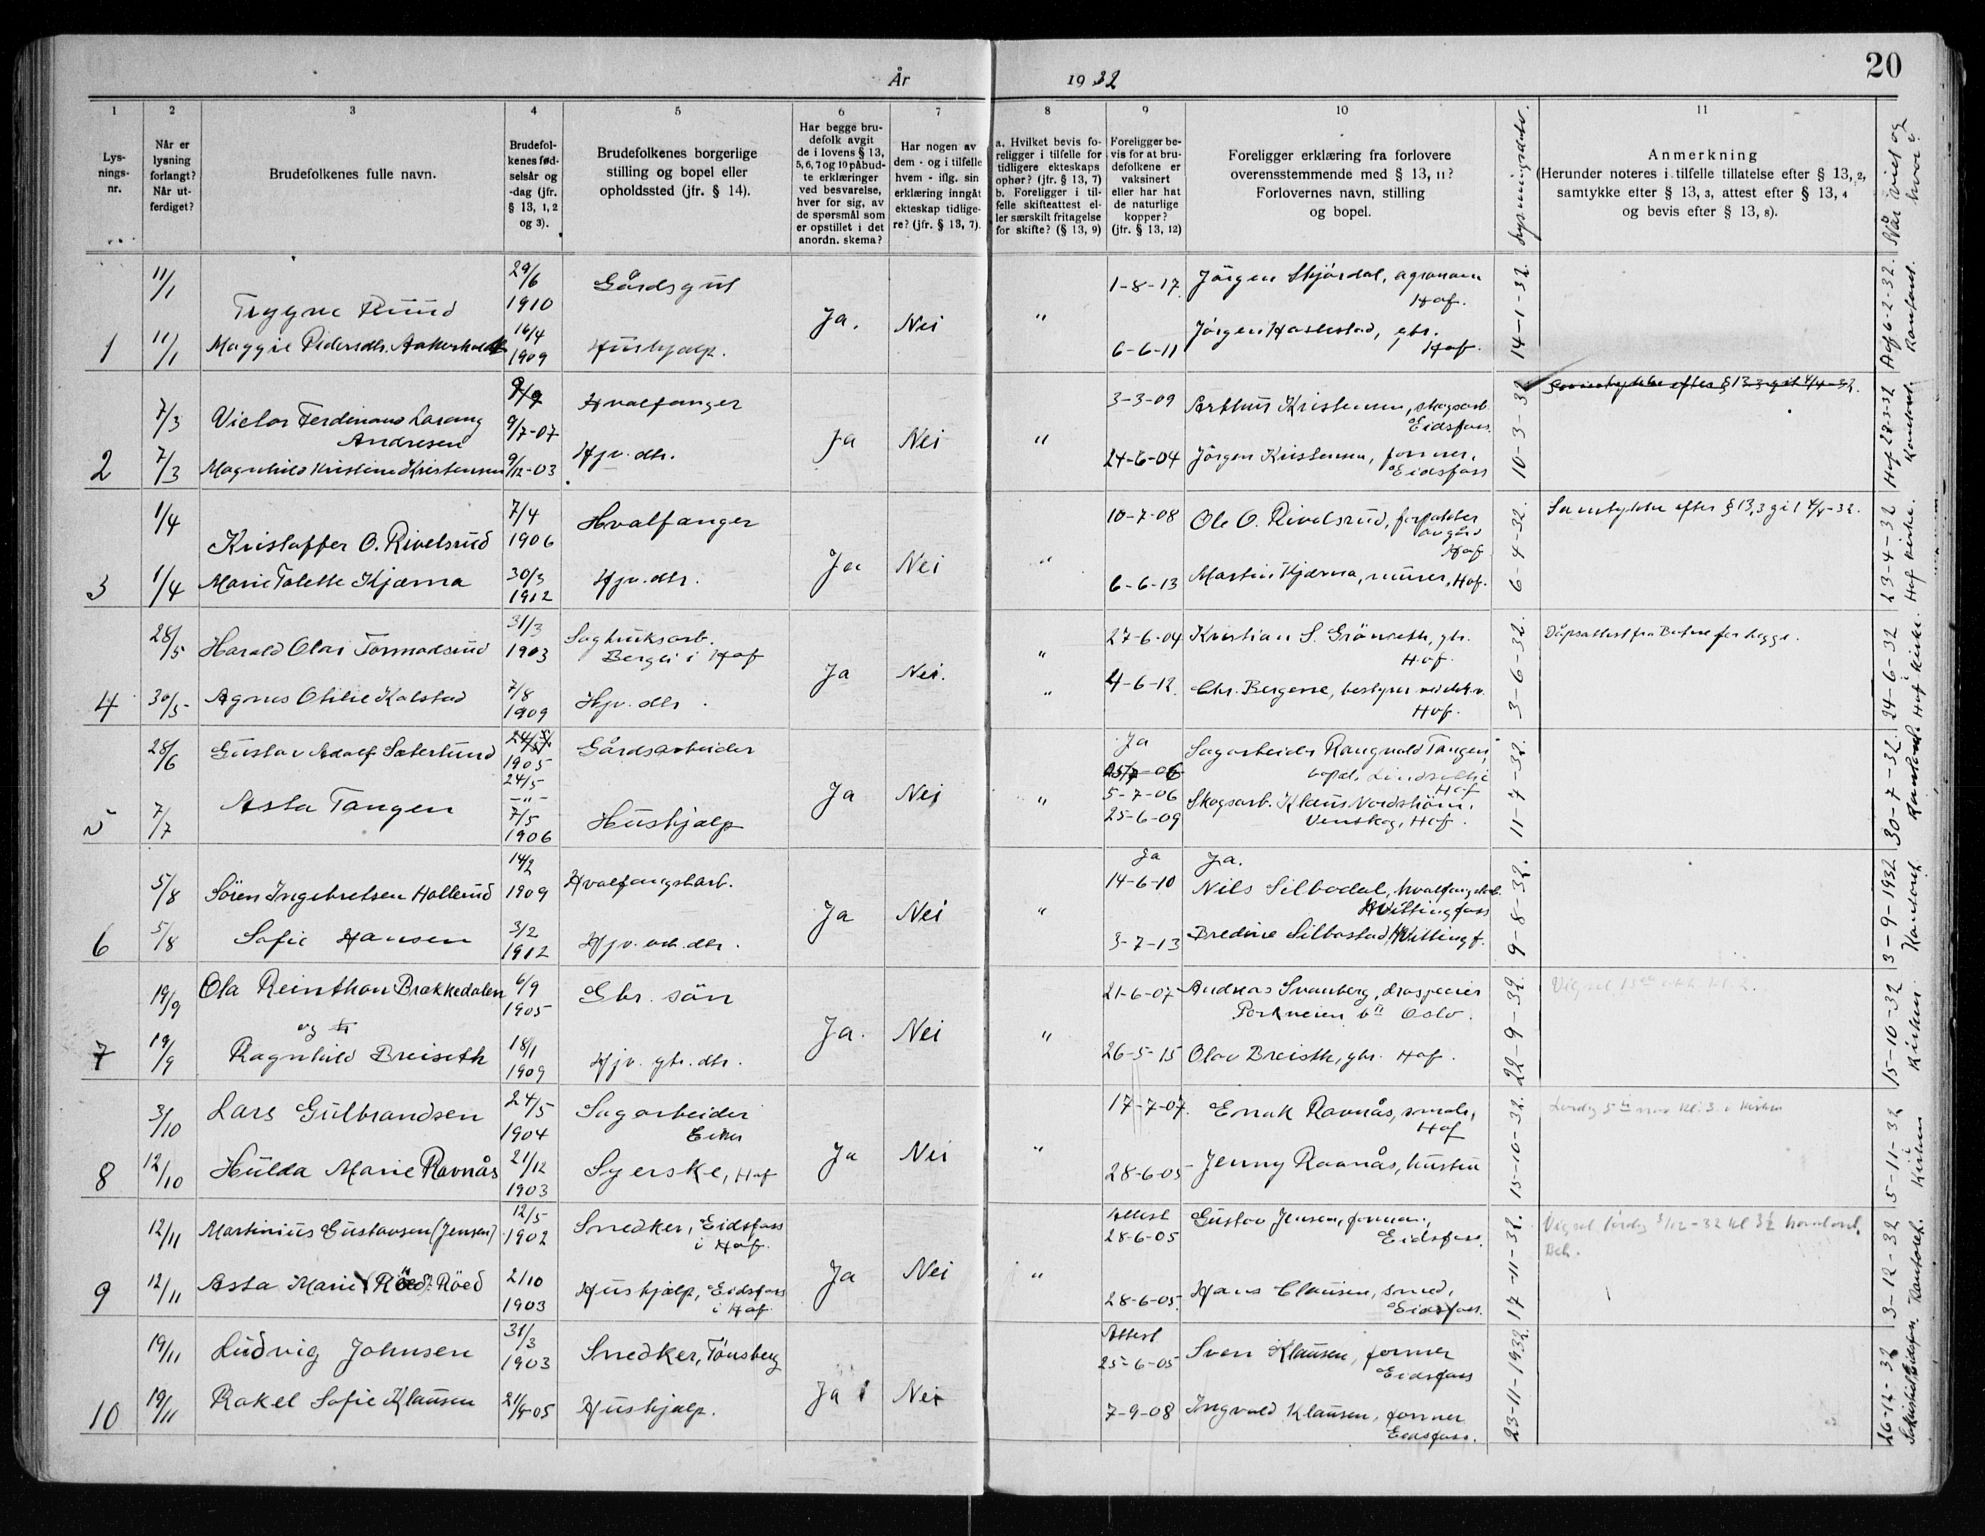 20
År 1932
1
2
3
4
5
6
7
8
9
10
11
Lys-
nings-
nr.
Når er
lysning
forlangt?
Når ut-
ferdiget?
Brudefolkenes fulle navn.
Brudefol-
kenes fød-
selsår og
-dag (jfr.
§ 13, 1, 2
og 3).
Brudefolkenes borgerlige
stilling og bopel eller
opholdssted (jfr. § 14).
Har begge bru-
defolk avgit
de i lovens § 13,
5, 6, 7 og 10 påbud-
te erklæringer
ved besvarelse,
hver for sig, av
de spørsmål som
er opstillet i det
anordn. skema?
Har nogen av
dem - og i tilfelle
hvem - iflg. sin
erklæring inngått
ekteskap tidlige-
re? (jfr. § 13, 7).
a. Hvilket bevis fo-
religger i tilfelle for
tidligere ekteskaps
ophør? (jfr. § 13, 7)
b. Foreligger i til-
felle skifteattest el-
ler særskilt fritagelse
for skifte? (§ 13, 9)
Foreligger be-
vis for at bru-
defolkene er
vaksinert
eller har hat
de naturlige
kopper?
(jfr. § 13, 12)
Foreligger erklæring fra forlovere
overensstemmende med § 13, 11?
Forlovernes navn, stilling
og bopel.
Lysningsdato.
Anmerkning
(Herunder noteres i tilfelle tillatelse efter § 13, 2,
samtykke efter § 13, 3, attest efter § 13, 4
og bevis efter § 13, 8).
Når viet og
hvor?
1
11/1
Trygve Ruud
29/6
1910
Gårdsgut
Ja.
Nei
"
1-8-17
Jörgen Skjördal, agronom
Hof.
14-1-32.
11/1
Maggie Pedersdtr. Aakerholdt
16/4
1909
Hushjælp.
6-6-11
Jörgen Haslestad, gbr.
Hof.
Hof 6-2-32.
Kontoret.
2
7/3
Victor Ferdinand
Andresen
9/7-07
Hvalfanger
Ja
Nei
"
3-3-09
Arthur Kristensen, skogsarb.
Eidsfoss.
10-3-32
Samtykke efter § 13,3 git 4/4-32.
7/3
Magnhild Kristine Kristensen
9/12-03
Hjv. dtr.
24-6-04
Jörgen Kristensen, former,
Eidsfoss
Hof 28-3-32
Kontoret.
3
1/4
Kristoffer O. Rivelsrud
7/4
1906
Hvalfanger
Ja
Nei
"
10-7-08
Ole O. Rivelsrud, forpakter
Hof
6-4-32.
Samtykke efter § 13,3 git 4/4-32.
1/4
Marie Tolette Kjærna
30/3
1912
Hjv. dtr.
6-6-13
Martin Kjærna, murer, Hof.
23-4-32
Hof kirke.
4
28/5
Harald Olai Tormodsrud
31/3
1903
Sagbruksarb.
Berger i Hof
Ja
Nei.
"
27-6-04
Kristian S. Grönseth, gbr.
Hof.
3-6-32.
Dåpsattest fra Botne for begge.
30/5
Agnes Otilie Kolstad
7/8
1909
Hjv. dtr.
"
4-6-12.
Chr. Bergene, bestyrer
Hof.
24-6-32
Hof kirke.
5
28/6
Gustav Adolf Sæterlund
1905
24/5
-"-
Gårdsarbeider
Ja
Nei
"
Ja
5-7-06
Sagarbeider Rangvald Tangen,
bopel,
Hof
11-7-32.
7/7
Asta Tangen
7/5
1906
Hushjælp
25-6-09
Skogsarb. Klaus Nordström,
Venskog, Hof.
30-7-32.
Kontoret.
6
5/8
Sören Ingebretsen Hollerud
14/2
1909
Hvalfangstarb.
Ja
Nei
"
Ja
14-6-10
Ja.
Nils Silbodal, hvalfangstarb.
Hvittingfoss
9-8-32.
5/8
Sofie Hansen
3/2
1912
Hjv. arb. dtr.
3-7-13
Bredine Silbostad, Hvittingf.
3-9-1932
Kontoret
7
19/9
Ola Reinthon Brekkedalen
6/9
1905
Gbr. sön
Ja.
Nei
"
21-6-07
Andreas Svanberg, drosjeeier
Parkveien 6 II Oslo.
22-9-32.
19/9
og
Ragnhild Breiseth
18/1
1909
Hjv. gbr. dtr.
26-5-15
Olav Breiseth, gbr. Hof.
15-10-32
kirken.
8
3/10
Lars Gulbrandsen
24/5
1904
Sagarbeider
Eiker
Ja
Nei
"
17-7-07.
Enok Ravnås, smabr,
Hof
15-10-32.
Lördag 5te nov kl. 3 i kirken
12/10
Hulda Marie Ravnås
21/12
1903
Syerske, Hof
28-6-05
Jenny Ravnås, hustru
5-11-32
i kirken
9
12/11
Martinius Gustavsen (Jensen)
12/5
1902
Snedker, Eidsfoss
i Hof.
Ja
Nei
"
Attest
28-6-05
Gustav Jensen, former,
Eidsfoss.
17-11-32.
Vigsel lördag 3/12-32 kl 3½
12/11
Asta Marie Röed
2/10
1903
Hushjælp, Eidsfoss
i Hof.
28-6-05.
Hans Clausen, smed,
Eidsfoss.
3-12-32
Kontoret.
10
19/11
Ludvig Johnsen
31/3
1903
Snedker, Tönsberg
Ja
Nei
Attest
25-6-05
Sven Klausen, former
Eidsfoss
23-11-1932.
19/11
Rakel Sofie Klausen
21/9-05
Hushjælp.
7-9-08
Ingvald Klausen, former
Eidsfoss.
26-12-32